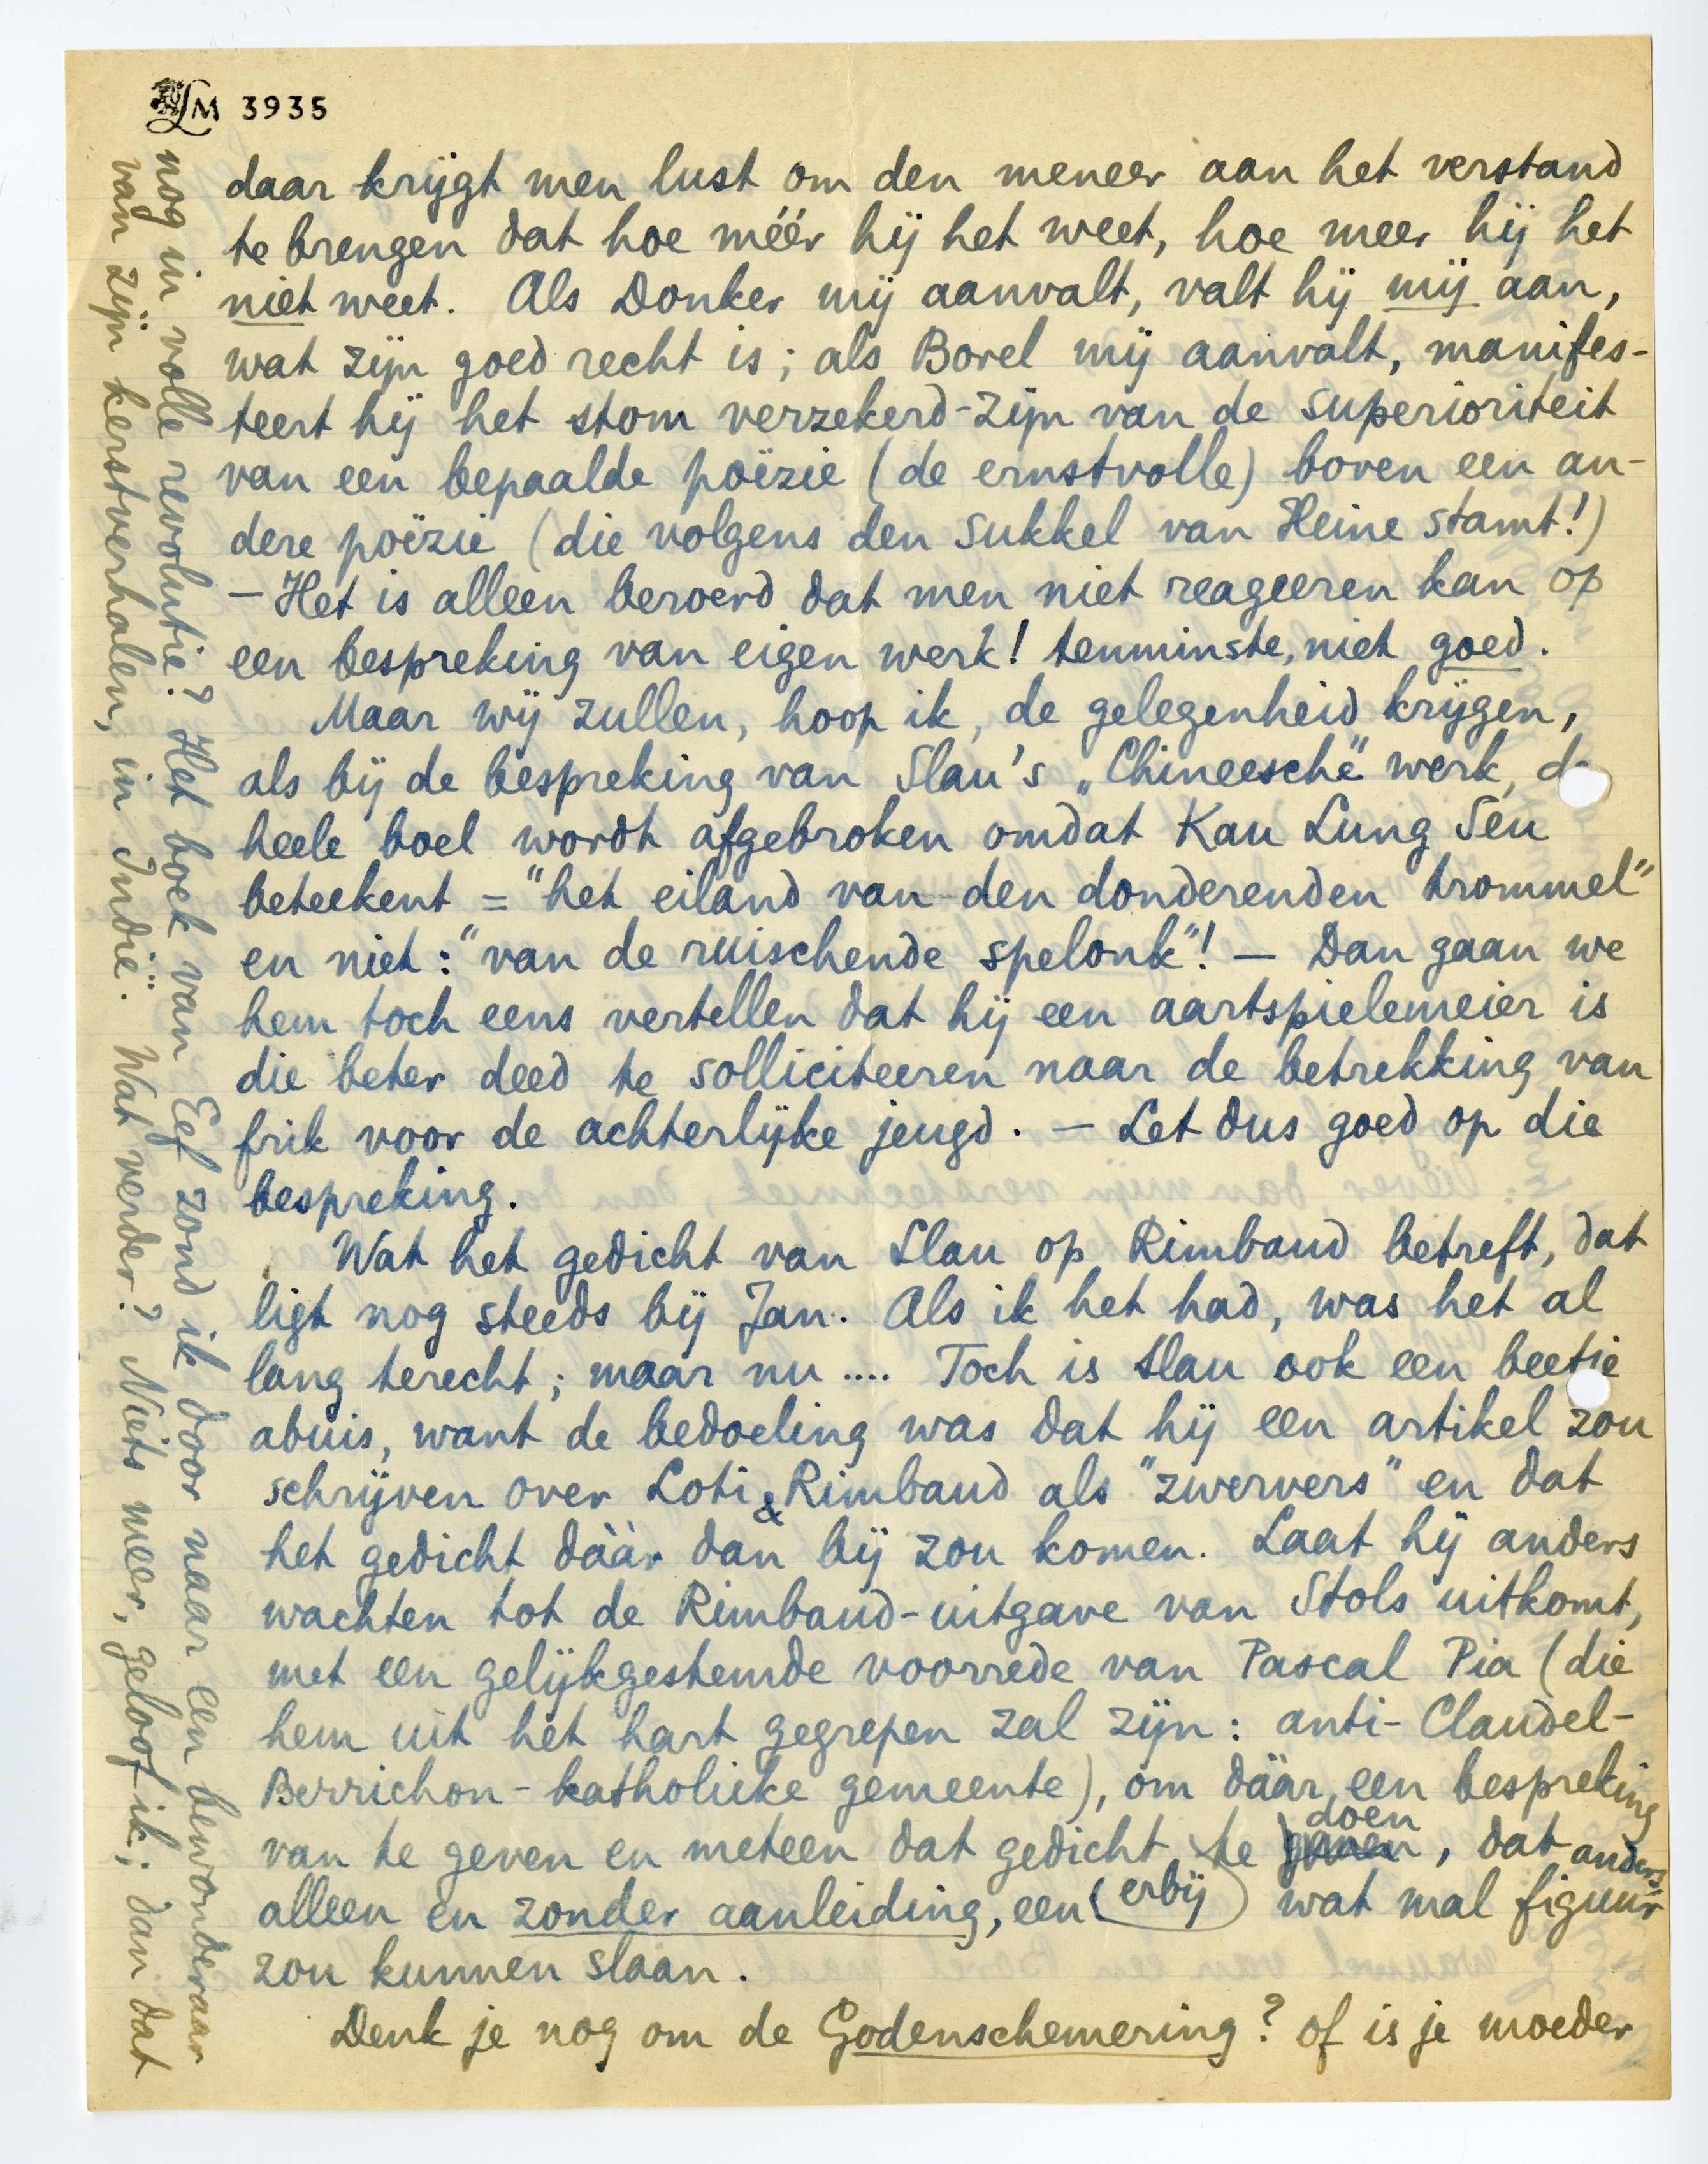 LM 3935
daar krijgt men lust om den meneer aan het verstand
te brengen dat hoe méér hij het weet, hoe meer hij het
niet weet. Als Donker mij aanvalt, valt hij mij aan,
wat zijn goed recht is; als Borel mij aanvalt, manifes-
teert hij het stom verzekerd-zijn van de superioriteit
van een bepaalde poëzie (de ernstvolle) boven een an-
dere poëzie (die volgens den sukkel van Heine stamt!)
— Het is alleen beroerd dat men niet reageeren kan op
een bespreking van eigen werk! tenminste, niet goed.
Maar wij zullen, hoop ik, de gelegenheid krijgen,
als bij de bespreking van Slau's „Chineesche" werk, de
heele boel wordt afgebroken omdat Kau Lung Seu
beteekent = "het eiland van den donderenden trommel"
en niet: "van de ruischende spelonk"! — Dan gaan we
hem toch eens vertellen dat hij een aartspielemeier is
die beter deed te solliciteeren naar de betrekking van
frik voor de achterlijke jeugd. — Let dus goed op die
bespreking.
Wat het gedicht van Slau op Rimbaud betreft, dat
ligt nog steeds bij Jan. Als ik het had, was het al
lang terecht; maar nu .... Toch is Slau ook een beetje
abuis, want de bedoeling was dat hij een artikel zou
schrijven over Loti & Rimbaud als "zwervers" en dat
het gedicht dààr dan bij zou komen. Laat hij anders
wachten tot de Rimbaud-uitgave van Stols uitkomt,
met een gelijkgestemde voorrede van Pascal Pia (die
hem uit het hart gegrepen zal zijn: anti-Claudel-
Berrichon-katholieke gemeente), om dáár een bespreking
van te geven en meteen dat gedicht te doen, dat anders,
alleen en zonder aanleiding, een (erbij) wat mal figuur
zou kunnen slaan.
Denk je nog om de Godenschemering? of is je moeder
nog in volle revolutie? Het boek van Eef zond ik door naar een bewonderaar
van zijn kerstverhalen, in Indië. Wat verder? Niets meer, geloof ik; dan dat